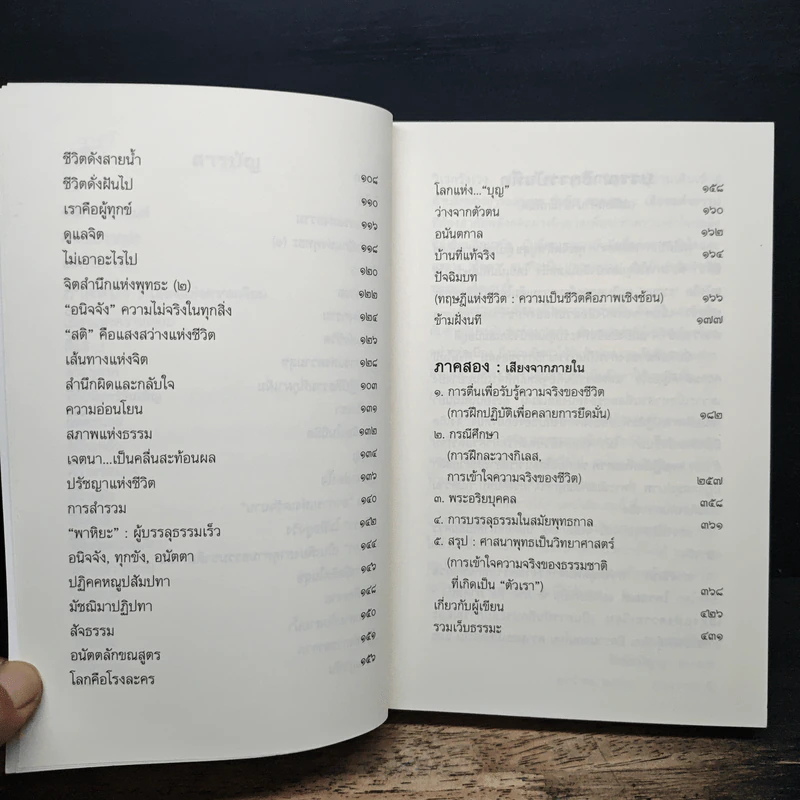 ชีวิตดังสายน้ำ ๑๐๘
ชีวิตดั่งฝันไป ๑๑๐
เราคือผู้ทุกข์ ๑๑๖
ดูแลจิต ๑๑๘
ไม่เอาอะไรไป ๑๒๐
จิตสำนึกแห่งพุทธะ (๒) ๑๒๒
“อนิจจัง” ความไม่จริงในทุกสิ่ง ๑๒๔
“สติ” คือแสงสว่างแห่งชีวิต ๑๒๖
เส้นทางแห่งจิต ๑๒๘
สำนึกผิดและกลับใจ ๑๐๓
ความอ่อนโยน ๑๓๑
สภาพแห่งธรรม ๑๓๒
เจตนา...เป็นคลื่นสะท้อนผล ๑๓๔
ปรัชญาแห่งชีวิต ๑๓๖
การสำรวม ๑๔๐
“พาหิยะ” : ผู้บรรลุธรรมเร็ว ๑๔๒
อนิจจัง, ทุกขัง, อนัตตา ๑๔๔
ปฏิคคหณูปสัมปทา ๑๔๖
มัชฌิมาปฏิปทา ๑๔๘
สัจธรรม ๑๕๐
อนัตตลักขณสูตร ๑๕๑
โลกคือโรงละคร ๑๕๖
โลกแห่ง...“บุญ” ๑๕๘
ว่างจากตัวตน ๑๖๐
อนันตกาล ๑๖๒
บ้านที่แท้จริง ๑๖๔
ปัจฉิมบท
(ทฤษฎีแห่งชีวิต : ความเป็นชีวิตคือภาพเชิงซ้อน) ๑๖๖
ข้ามฝั่งนที ๑๗๗
ภาคสอง : เสียงจากภายใน
๑. การตื่นเพื่อรับรู้ความจริงของชีวิต
(การฝึกปฏิบัติเพื่อคลายการยึดมั่น) ๑๘๒
๒. กรณีศึกษา
(การฝึกละวางกิเลส,
การเข้าใจความจริงของชีวิต) ๒๕๗
๓. พระอริยบุคคล ๓๕๘
๔. การบรรลุธรรมในสมัยพุทธกาล ๓๖๑
๕. สรุป : ศาสนาพุทธเป็นวิทยาศาสตร์
(การเข้าใจความจริงของธรรมชาติ
ที่เกิดเป็น “ตัวเรา”) ๓๖๘
เกี่ยวกับผู้เขียน ๔๒๖
รวมเว็บธรรมะ ๔๓๑